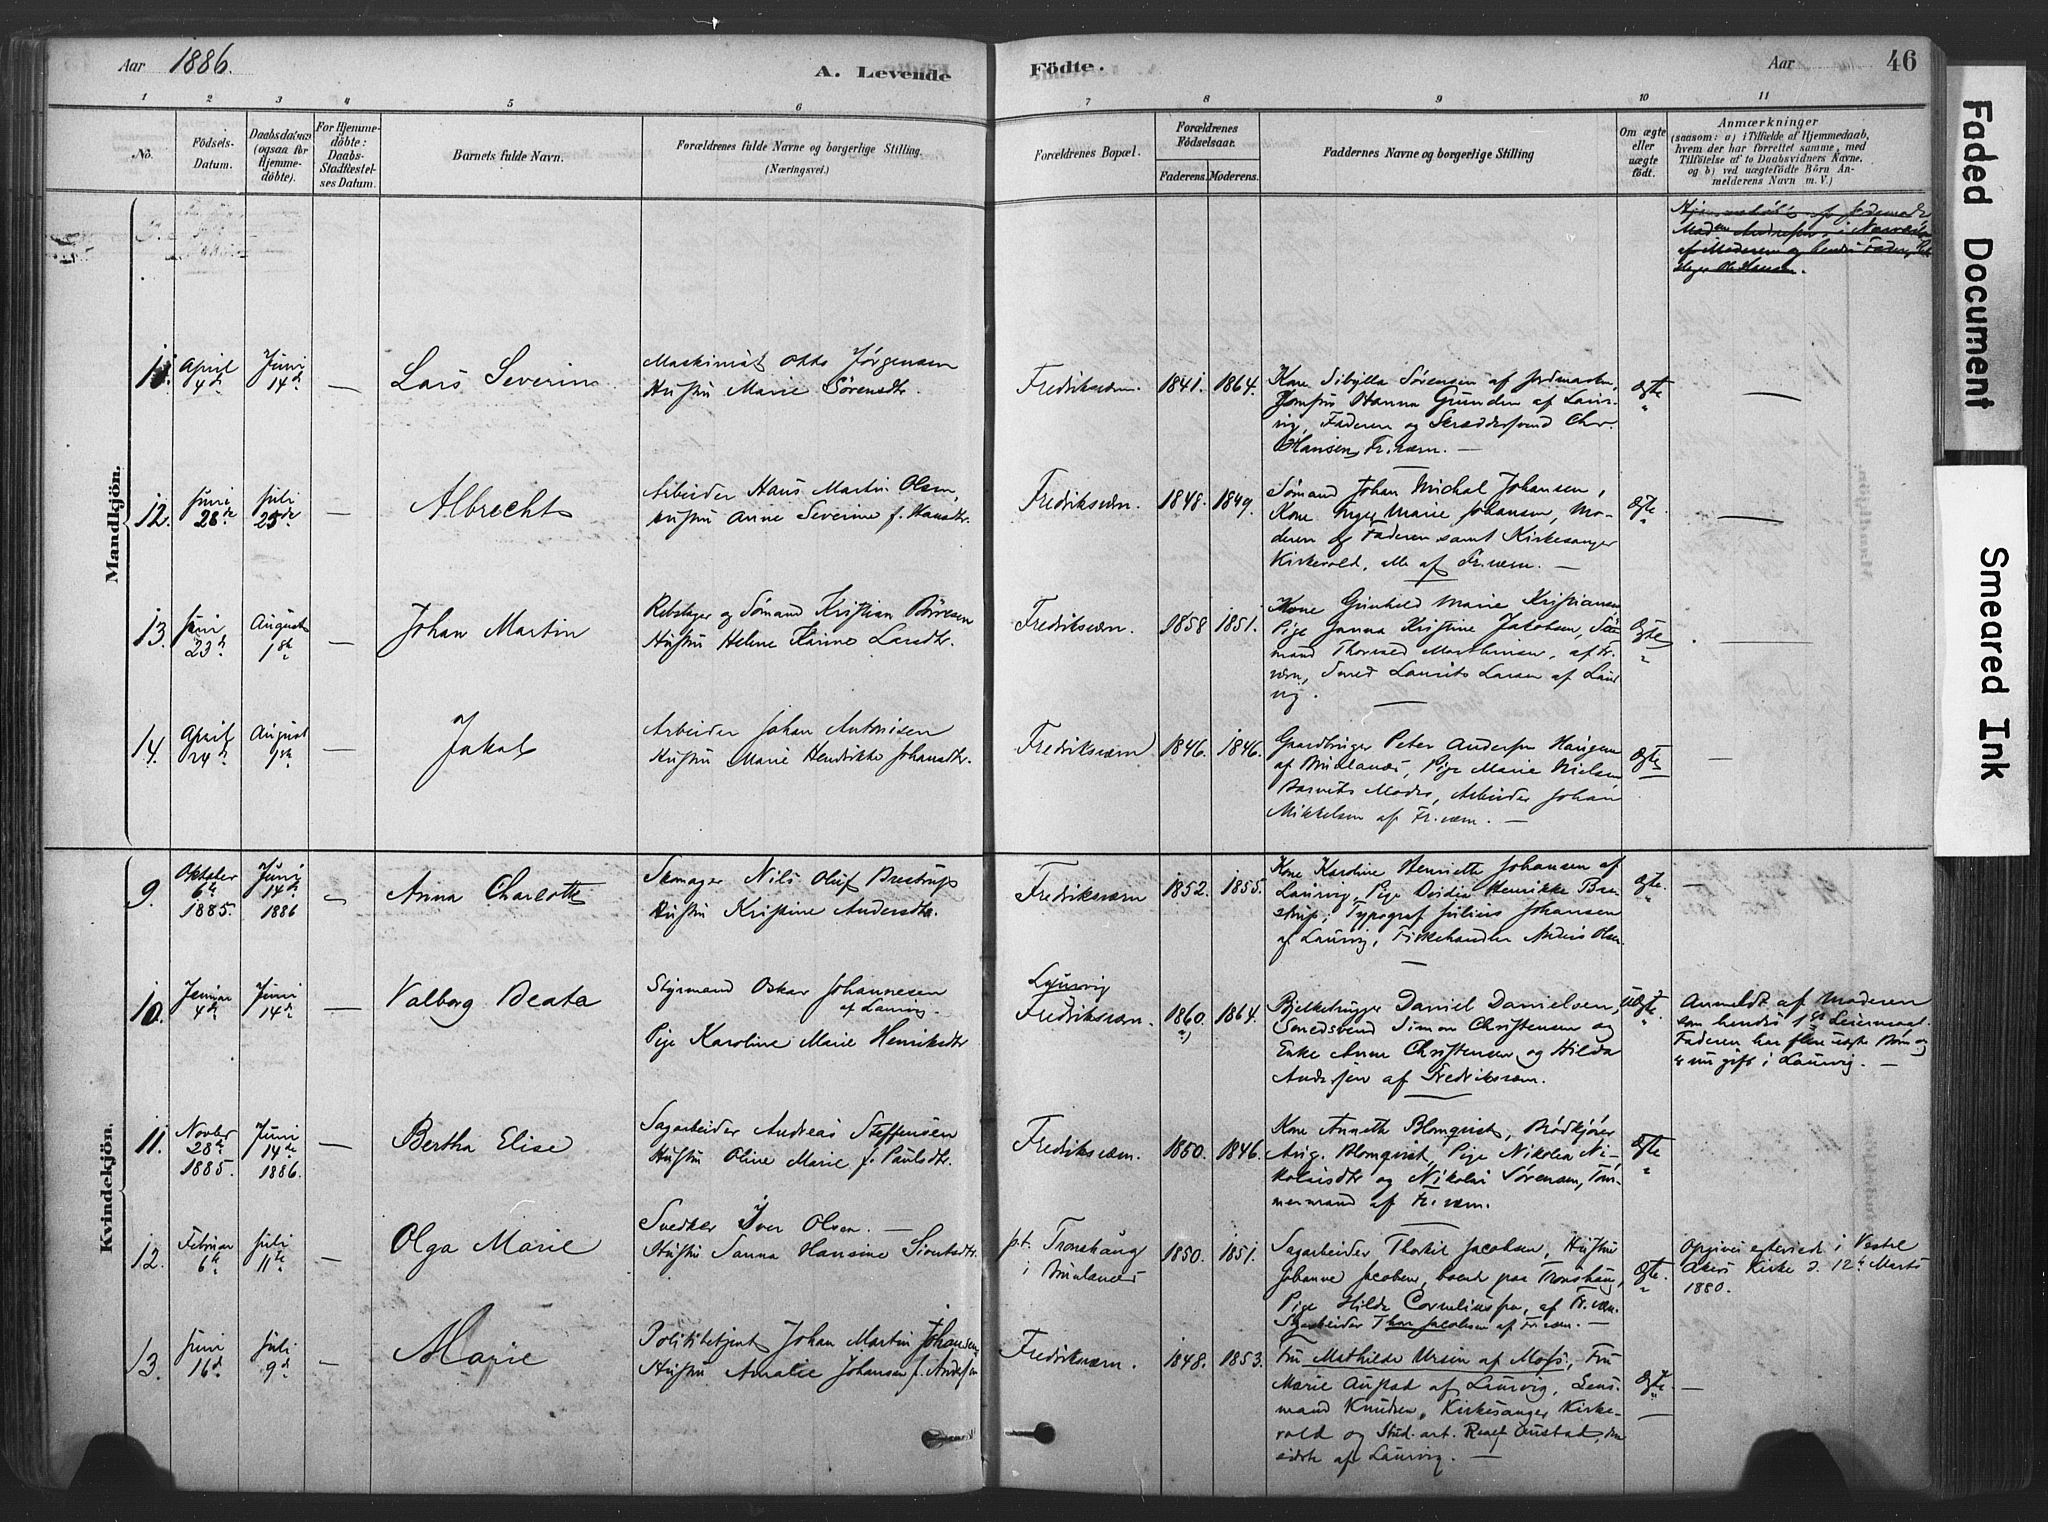 Aar 1886.
A. Levende
Födte.
Aar
46
1 2 3 4 5 6 7 8 9 10 11
No.
Födsels-
Datum.
Daabsdatum
(ogsaa for
Hjemme-
döbte).
For Hjemme-
döbte:
Daabs-
Stadfæstel-
ses Datum.
Barnets fulde Navn.
Forældrenes fulde Navne og borgerlige Stilling.
(Næringsvei.)
Forældrenes Bopæl.
Forældrenes
Födselsaar.
Faderens. Moderens.
Faddernes Navne og borgerlige Stilling
Om ægte
eller
uægte
födt.
Anmærkninger
(saasom: a) i Tilfælde af Hjemmedaab,
hvem der har forrettet samme, med
Tilföielse af to Daabsvidners Navne.
og b) ved uægtefödte Börn An-
melderens Navn m. V.)
Mandkjön.
11. April 4de
Juni 14de
—
Lars Severin
Maskinist Otto Jørgensen
Hustru Marie Sørensdtr.
Fredriksværn. 1841. 1864.
Kone Sibylla Sørensen af
Jomfru Hanna Grunden af Laur-
vig, Faderen og Skræddersvend Chr.
Hansen, Fr.værn. —
Ægte
—
12. Juni 28de
Juli 25de
—
Albrecht
Arbeider Hans Martin Olsen,
Hustru Anne Severine f. Hansdtr.
Fredriksværn. 1848. 1849.
Sømand Johan Michal Johansen,
Kone Inger Marie Johansen, Mo-
deren og Faderen samt Kirkesanger
Kirkevold, alle af Fr.værn. —
Ægte.
—
13. Juni 23de
August 1ste
—
Johan Martin
Rebslager og Sømand Kristian Børesen
Hustru Helene Karine Larsdtr.
Fredriksværn. 1858 1851.
Kone Gunhild Marie Kristiansen
Pige Kristine Jacobsen, Sø-
mand Thorvald Marthinsen, af Fr.
værn, Smed Laurits Larsen af Laur
vig.
Ægte
—
14. April 24de
August 1ste
—
Jakob
Arbeider Johan Antonisen
Hustru Marie Hendrikke Johansdtr.
Fredriksværn 1846. 1846.
Gaardbruger Peter Andersen Haugene
af Brunlanæs, Pige Marie Nielsen
Barnets Moder, Arbeider Johan
Mikkelsen af Fr.værn. —
Ægte
—
Kvindekjön.
9. Oktober 6te 1885.
Juni 14de 1886
—
Anna Charlotte
Skomager Nils Oluf Brestrup
Hustru Kristine Andersdtr.
Fredriksværn 1852. 1855.
Kone Karoline Henriette Johansen af
Laurvig, Pige Henrikke Bre-
strup, Typograf Julius Johansen
af Laurvig, Fiskehandler Anders Olsen
Ægte.
—
10. Januar 4de
Juni 14de
—
Valborg Beata
Styrmand Oskar Johannesen
af Laurvig.
Pige Karoline Marie Henriksdtr
Laurvig
Fredriksværn. 1860. 1864.
Daniel Danielsen,
Smedsvend Simon Christensen og
Enke Anne Christensen og Hilda
Andersen af Fredriksværn.
Uægte.
Anmeldt af Moderen
som hendes 1ste Leiermaal.
Faderen har flere uægte Børn og
er nu gift i Laurvig. —
11. Novbr 28de 1885.
Juni 14de 1886.
—
Bertha Elise
Sagarbeider Andreas Steffensen
Hustru Oline Marie f. Paulsdtr.
Fredriksværn. 1850. 1846.
Kone Annette Blomqvist, Brødkjører
Aug. Blomqvist, Pige Nikolea Ni-
kolaisdtr og Nikolai Sørensen, Tøm-
mermand af Fr.værn.
Ægte
12. Februar 6te
Juli 11te
—
Olga Marie
Snedker Iver Olsen. —
Hustru Sanna Hansine Sivertsdtr.
p.t. Tronshaug
i Brunlanæs 1850. 1851.
Sagarbeider Thorkil Jacobsen, Hustru
Johanne Jacobsen, boende paa Tronshaug,
Pige Hilda Corneliussen, af Fr.værn.
Sagarbeider Thor Jacobsen af Fr.værn. —
Ægte.
Opgives egteviede i Vestre
Akers Kirke d. 12te Marts
1880.
13. Juni 16de
Juli 9de
—
Marie
Politibetjent Johan Martin Johansen
Hustru Amalie Johansen f. Andersen
Fredriksværn. 1848. 1853.
Fru Mathilde Ursin af Moss, Fru
Marie Austad af Laurvig, Lens-
mand Knudsen, Kirkesanger Kirke-
vold og Stud. art. Realf Austad, den
sidste af Laurvig. —
Ægte.
—
Faded Document
Smeared Ink